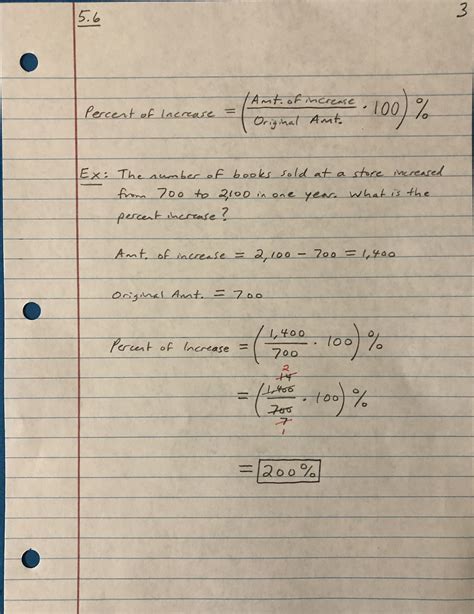 5.6
3
Percent of Increase = (Amt. of increase / Original Amt. · 100) %
Ex: The number of books sold at a store increased
from 700 to 2,100 in one year. What is the
percent increase?
Amt. of increase = 2,100 - 700 = 1,400
Original Amt. = 700
Percent of Increase = (1,400 / 700 · 100) %
2
14
= (1,400 / 700 · 100) %
7
1
= 200%